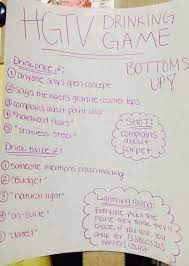 HGTV DRINKING GAME
BOTTOMS UP!
Drink once if:
① anyone says open concept
② says the want granite counter tops
③ complains about paint color
④ "hardwood floors"
⑤ "stainless steel"
SHOT!
complains about carpet
Drink twice if:
① someone mentions crown molding
② "Budget"
③ "natural light"
④ "on-suite"
⑤ "dated"
Lightning Round:
Everyone picks the
house they think they'll
choose, if you lose you
drink for 5 seconds
winners count